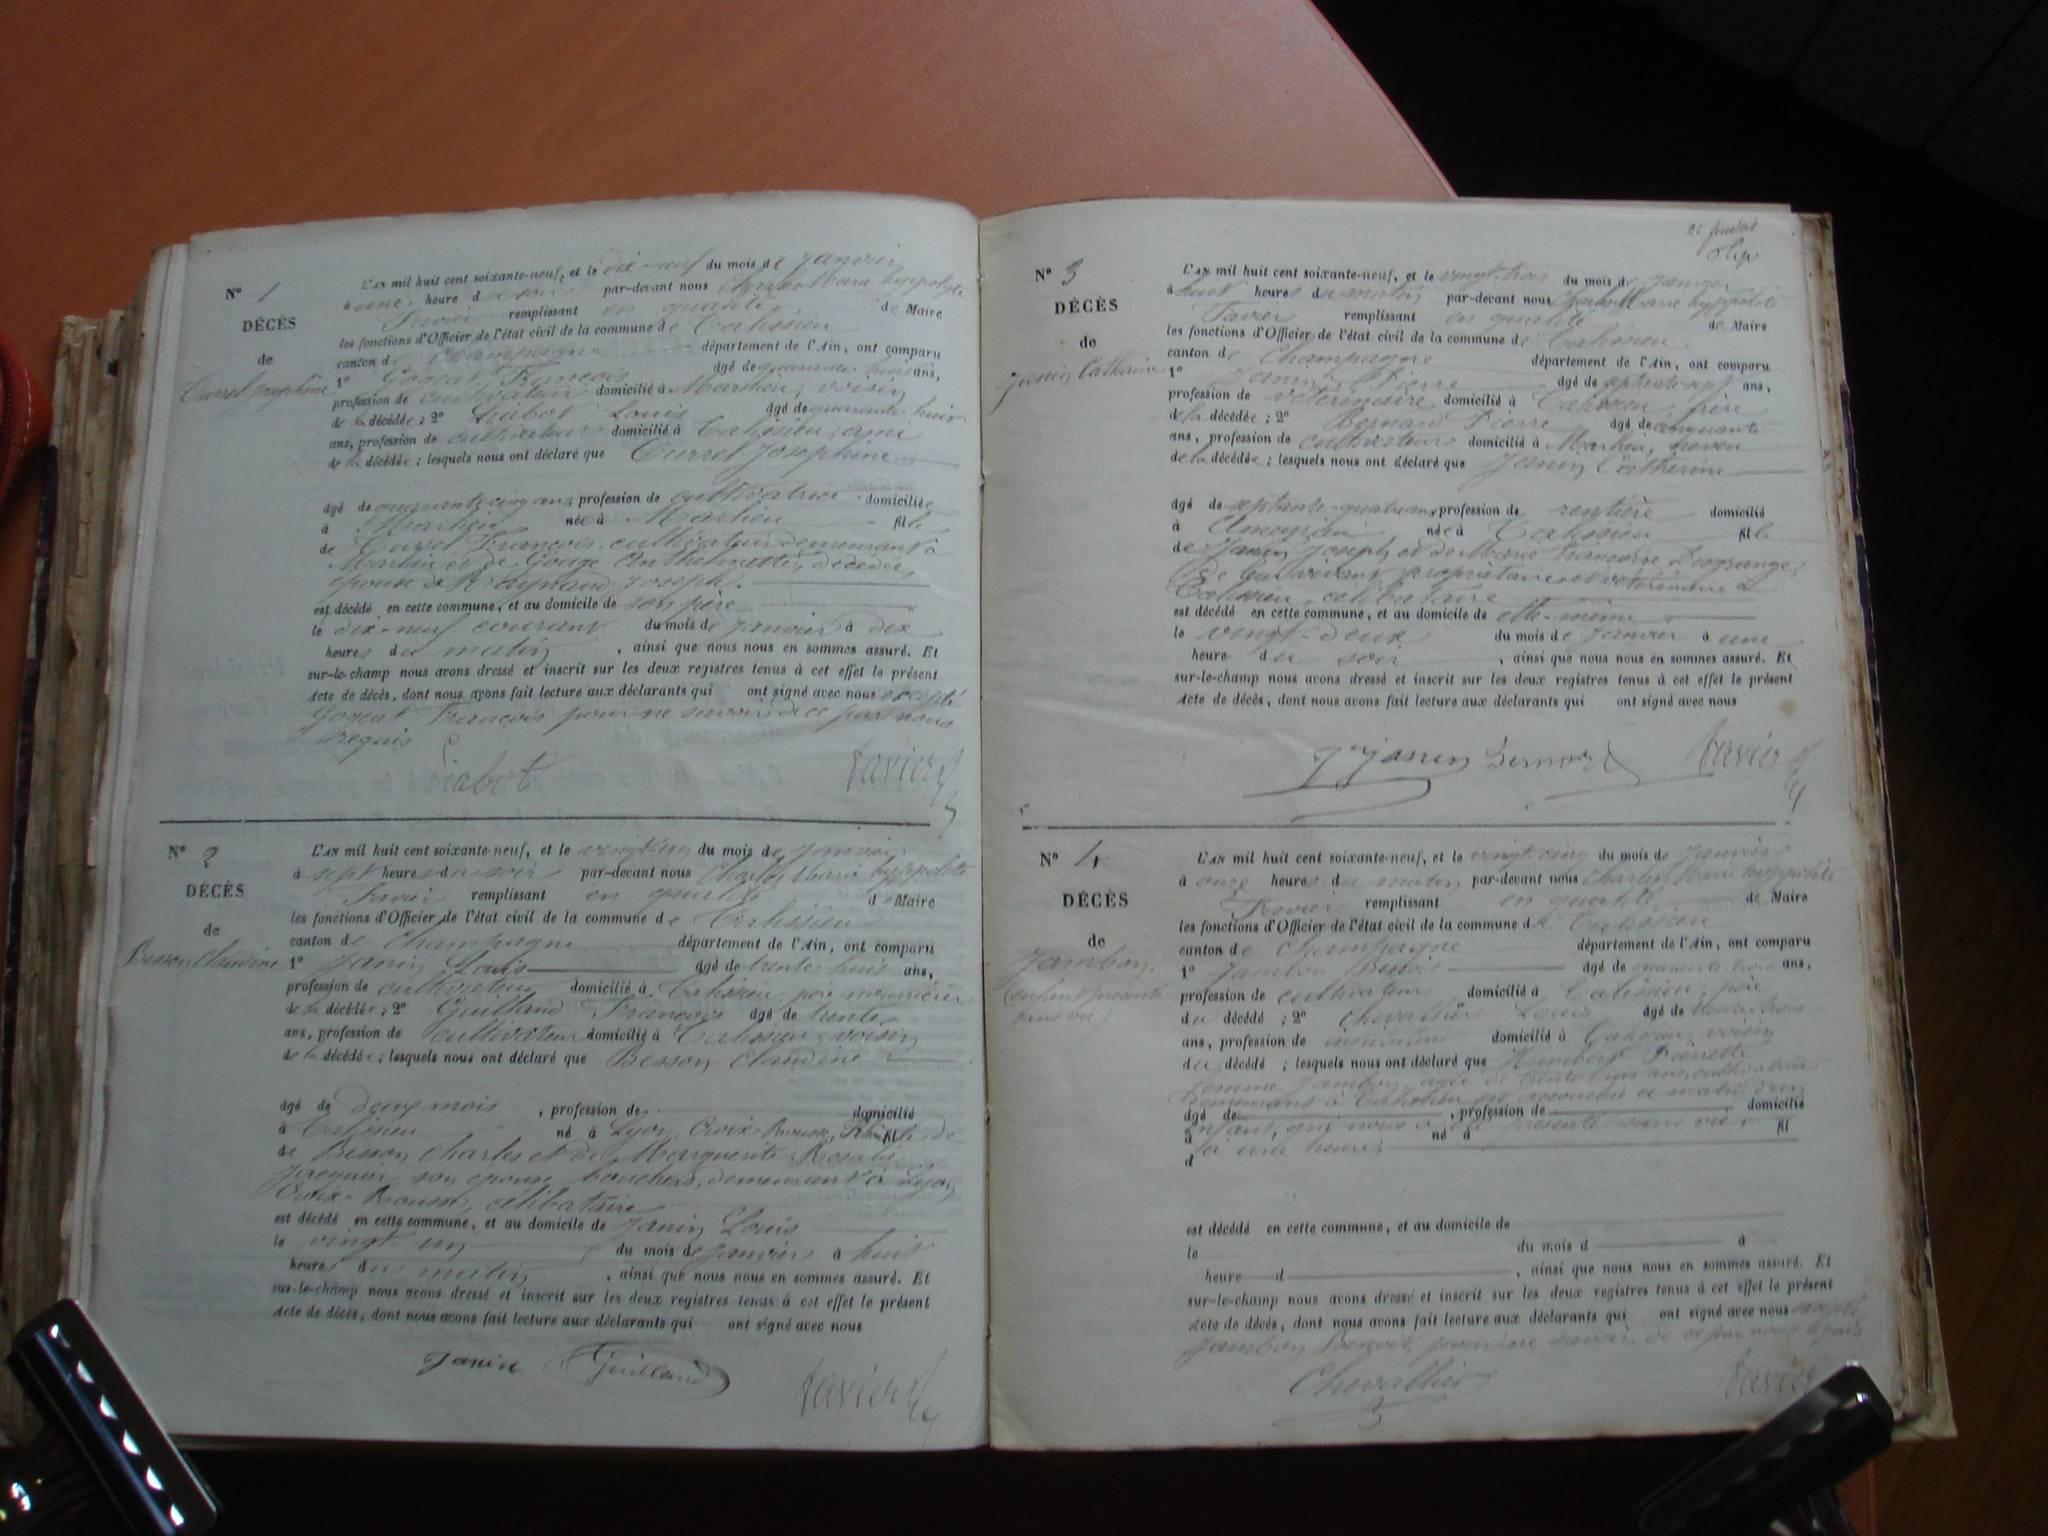 N° 1
DÉCÈS
de
Curret Josephine
L'AN mil huit cent soixante-neuf, et le dix-neuf du mois de Janvier
à une heure du soir par-devant nous Charles Marie hyppolyte
remplissant en qualité de Maire
les fonctions d'Officier de l'état civil de la commune de
canton de Champagne département de l'Ain, ont comparu
1° Gojeat François âgé de quarante-huit ans,
profession de cultivateur domicilié à voisin
de la décédée ; 2° Louis âgé de quarante-huit
ans, profession de cultivateur domicilié à ami
de la décédée ; lesquels nous ont déclaré que Curret Josephine
âgé de quarante-cinq ans, profession de cultivatrice domiciliée
à née à fille
de Curret François, cultivateur demeurant à
et de Gouge Anthelmette, décédée,
épouse de Raynaud Joseph.
est décédé en cette commune, et au domicile de son père
le dix-neuf courant du mois de Janvier à dix
heures du matin, ainsi que nous nous en sommes assuré. Et
sur-le-champ nous avons dressé et inscrit sur les deux registres tenus à cet effet le présent
Acte de décès, dont nous avons fait lecture aux déclarants qui ont signé avec nous excepté
Gojeat François pour ne savoir de ce par nous
requis
N° 2
DÉCÈS
de
Besson Claudine
L'AN mil huit cent soixante-neuf, et le vingt-un du mois de Janvier
à sept heures du soir par-devant nous Charles Marie hyppolite
remplissant en qualité de Maire
les fonctions d'Officier de l'état civil de la commune de
canton de Champagne département de l'Ain, ont comparu
1° Janin Louis âgé de trente-huit ans,
profession de cultivateur domicilié à père nourricier
de la décédée ; 2° Guilland François âgé de trente
ans, profession de cultivateur domicilié à voisin
de la décédée ; lesquels nous ont déclaré que Besson Claudine
âgé de deux mois, profession de domicilié
à né à Lyon, Croix-Rousse, fille de
de Besson Charles et de Marguerite Rosalie
Jacquier, son épouse bouchers, demeurant à Lyon,
Croix-Rousse, célibataire
est décédé en cette commune, et au domicile de Janin Louis
le vingt-un du mois de Janvier à huit
heures du matin, ainsi que nous nous en sommes assuré. Et
sur-le-champ nous avons dressé et inscrit sur les deux registres tenus à cet effet le présent
Acte de décès, dont nous avons fait lecture aux déclarants qui ont signé avec nous
Janin Guilland
2e feuillet
N° 3
DÉCÈS
de
Janin Catherine
L'AN mil huit cent soixante-neuf, et le vingt-trois du mois de Janvier
à huit heures du matin, par-devant nous Charles Marie hyppolite
remplissant en qualité de Maire
les fonctions d'Officier de l'état civil de la commune de
canton de Champagne département de l'Ain, ont comparu
1° Janin Pierre âgé de septante-sept ans,
profession de vétérinaire domicilié à frère
de la décédée ; 2° Pierre âgé de cinquante
ans, profession de cultivateur domicilié à neveu
de la décédée ; lesquels nous ont déclaré que Janin Catherine
âgé de septante-quatre ans, profession de rentière domicilié
à née à fille
de Janin Joseph et de Marie Françoise
de leur vivant propriétaires et vétérinaire à
célibataire
est décédé en cette commune, et au domicile de elle-même
le vingt-deux du mois de Janvier à une
heure du soir, ainsi que nous nous en sommes assuré. Et
sur-le-champ nous avons dressé et inscrit sur les deux registres tenus à cet effet le présent
Acte de décès, dont nous avons fait lecture aux déclarants qui ont signé avec nous
Janin
N° 4
DÉCÈS
de
Jambon,
(enfant présenté
sans vie)
L'AN mil huit cent soixante-neuf, et le vingt-cinq du mois de Janvier
à onze heures du matin, par-devant nous Charles Marie hyppolite
remplissant en qualité de Maire
les fonctions d'Officier de l'état civil de la commune de
canton de Champagne département de l'Ain, ont comparu
1° Jambon Benoit âgé de quarante-trois ans,
profession de cultivateur domicilié à père
du décédé ; 2° Chevallier Louis âgé de trente-trois
ans, profession de instituteur domicilié à voisin
du décédé ; lesquels nous ont déclaré que Humbert Pierrette
femme Jambon, âgée de ans, cultivatrice
demeurant à est accouchée ce matin d'un
âgé de, profession de domicilié
enfant, qui nous a été présenté sans vie,
à né à fil
d à une heure,
est décédé en cette commune, et au domicile de
le du mois d à
heure d, ainsi que nous nous en sommes assuré. Et
sur-le-champ nous avons dressé et inscrit sur les deux registres tenus à cet effet le présent
Acte de décès, dont nous avons fait lecture aux déclarants qui ont signé avec nous excepté
Jambon Benoit, pour ne savoir, de ce par nous requis
Chevallier